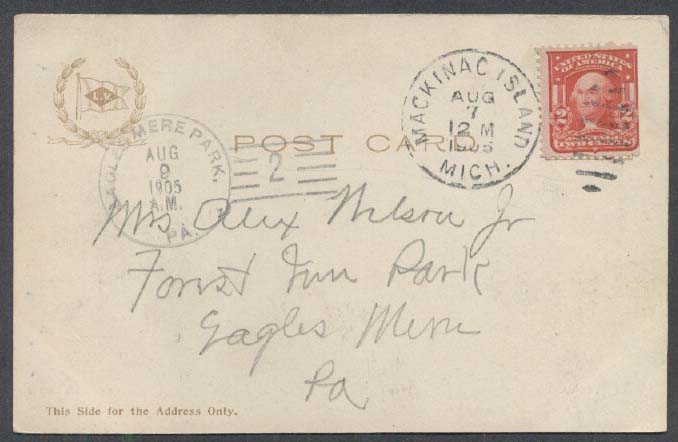 L.V.
POST CARD
MACKINAC ISLAND
AUG
7
12 M
1905
MICH.
UNITED STATES
OF AMERICA
2 2
TWO CENTS
EAGLES MERE PARK,
AUG
9
1905
A.M.
PA.
2
Mrs Alex Nelson Jr
Forest Inn Park
Eagles Mere
Pa
This Side for the Address Only.